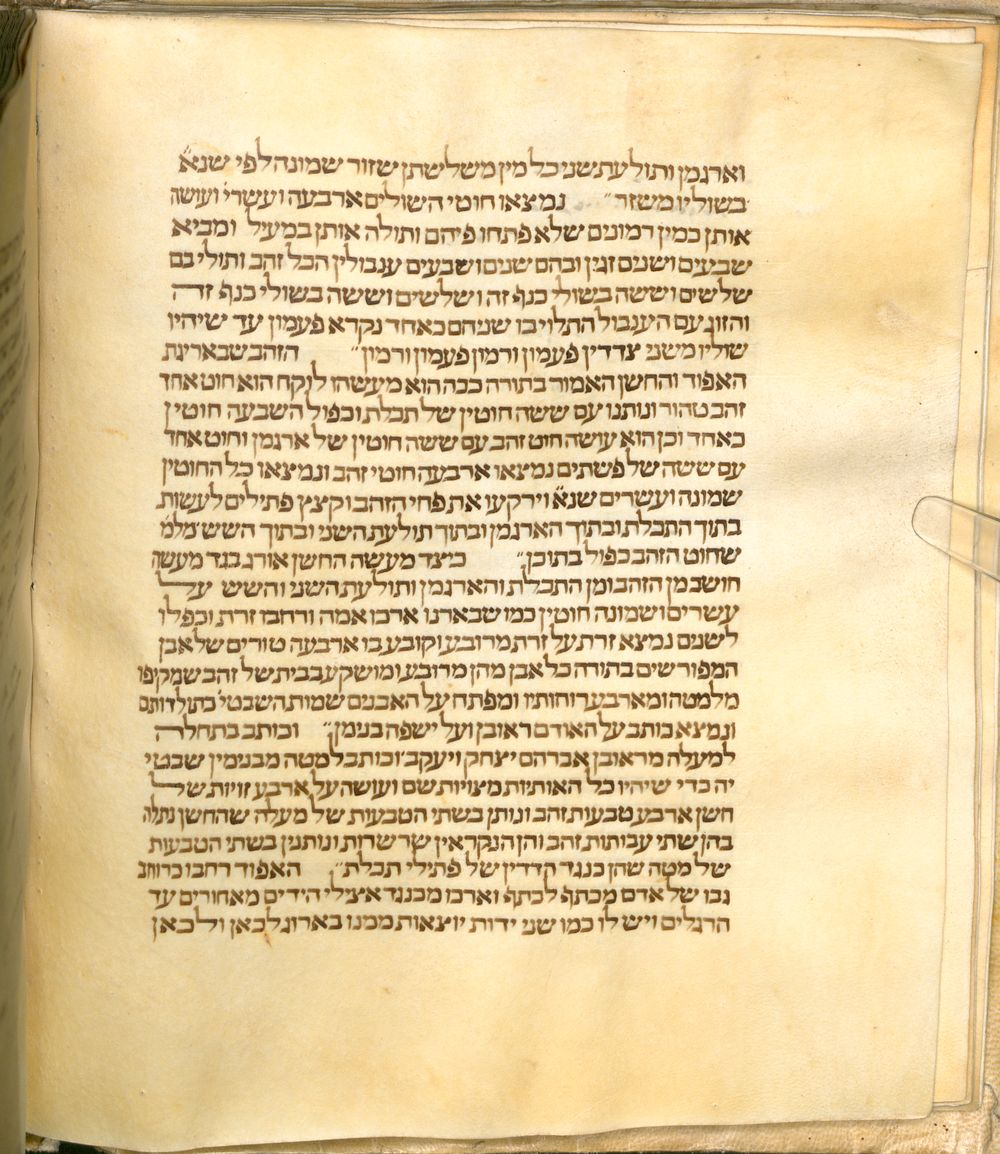 וארגמן ותולעת שני כל מין משלשתן שזור שמונה לפי שנא׳
בשוליו משזר״ נמצאו חוטי השולים ארבעה ועשרי׳ ועושה
אותן כמין רמונים שלא פתחו פיהם ותולה אותן במעיל ומביא
שבעים ושנים זגין ובהם שנים ושבעים ענבולין הכל זהב ותולי בם
שלשים וששה בשולי כנף זה ושלשים וששה בשולי כנף זה
והזוג עם הענבול התלוי בו שניהם כאחד נקרא פעמון עד שיהיו
שוליו משני צדדין פעמון ורמון פעמון ורמון״ הזהב שבאריגת
האפוד והחשן האמור בתורה ככה הוא מעשהו לוקח הוא חוט אחד
זהב טהור ונותנו עם ששה חוטין של תכלת וכפול השבעה חוטין
כאחד וכן הוא עושה חוט זהב עם ששה חוטין של ארגמן וחוט אחד
עם ששה של פשתים נמצאו ארבעה חוטי זהב ונמצאו כל החוטין
שמונה ועשרים שנא׳ וירקעו את פחי הזהב וקצץ פתילים לעשות
בתוך התכלת ובתוך הארגמן ובתוך תולעת השני ובתוך השש מלמ׳
שחוט הזהב כפול בתוכן״ כיצד מעשה החשן אורג בגד מעשה
חושב מן הזהב ומן התכלת והארגמן ותולעת השני והשש על
עשרים ושמונה חוטין כמו שבארנו ארכו אמה ורחבו זרת וכפלו
לשנים נמצא זרת על זרת מרובע וקובע בו ארבעה טורים של אבן
המפורשים בתורה כל אבן מהן מרובע ומושקע בבית של זהב שמקיפו
מלמטה ומארבע רוחותיו ומפתח על האבנים שמות השבטי׳ כתולדותם
ונמצא כותב על האודם ראובן ועל ישפה בנימן״ וכותב בתחלה
למעלה מראובן אברהם יצחק ויעקב׳ וכותב למטה מבנימין שבטי
יה כדי שיהיו כל האותיות מצויות שם ועושה על ארבע זויות של
חשן ארבע טבעות זהב ונותן בשתי הטבעות של מעלה שהחשן נתלה
בהן שתי עבותות זהב והן הנקראין שרשרות ונותנין בשתי הטבעות
של מטה שהן כנגד הדדין של פתילי תכלת״ האפוד רחבו כרוחב
גבו של אדם מכתף לכתף וארכו מכנגד אצילי הידים מאחורים עד
הרגלים ויש לו כמו שני ידות יוצאות ממנו בארוג לכאן ולכאן